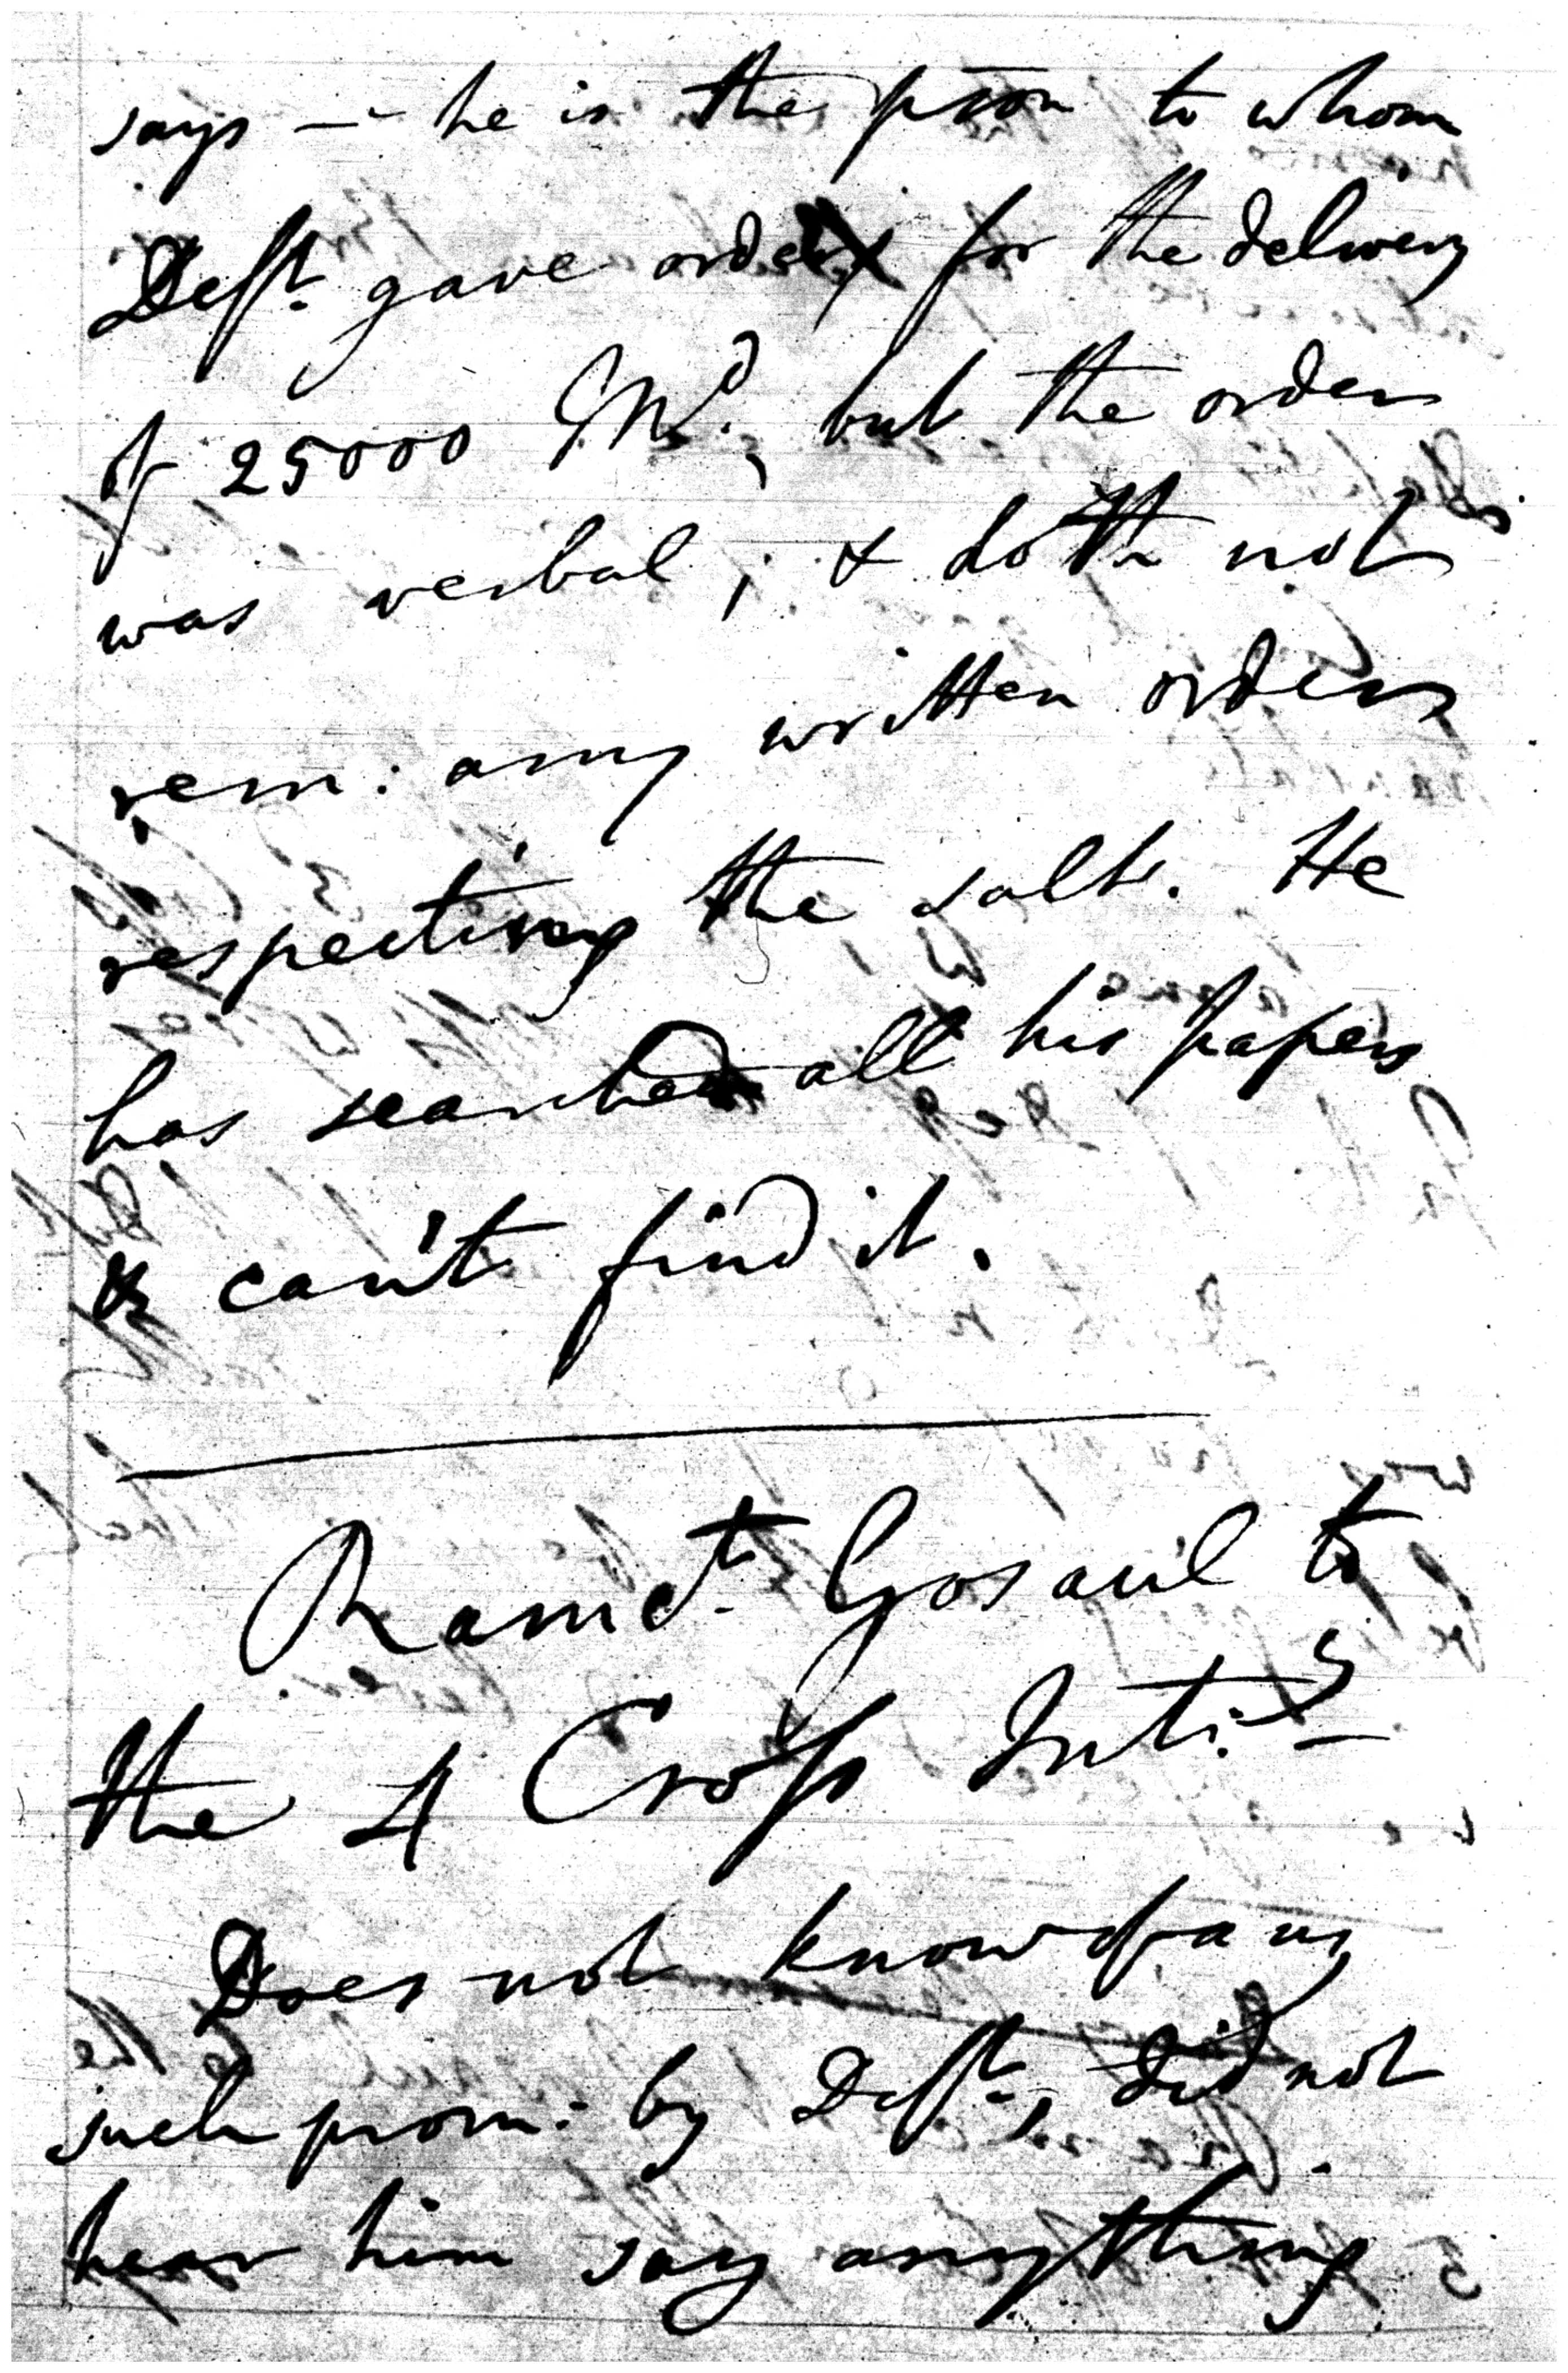 says — he is the pson to whom
Deft. gave order for the delivery
of 25000 Md., but the order
was verbal; & doth not
rem: any written orders
respecting the salt. He
has searched all his papers
& can't find it.
Ramct. Gosaul to
the 4 Cross Inty.
Does not know of any
such prom: by Deft., did not
hear him say anything